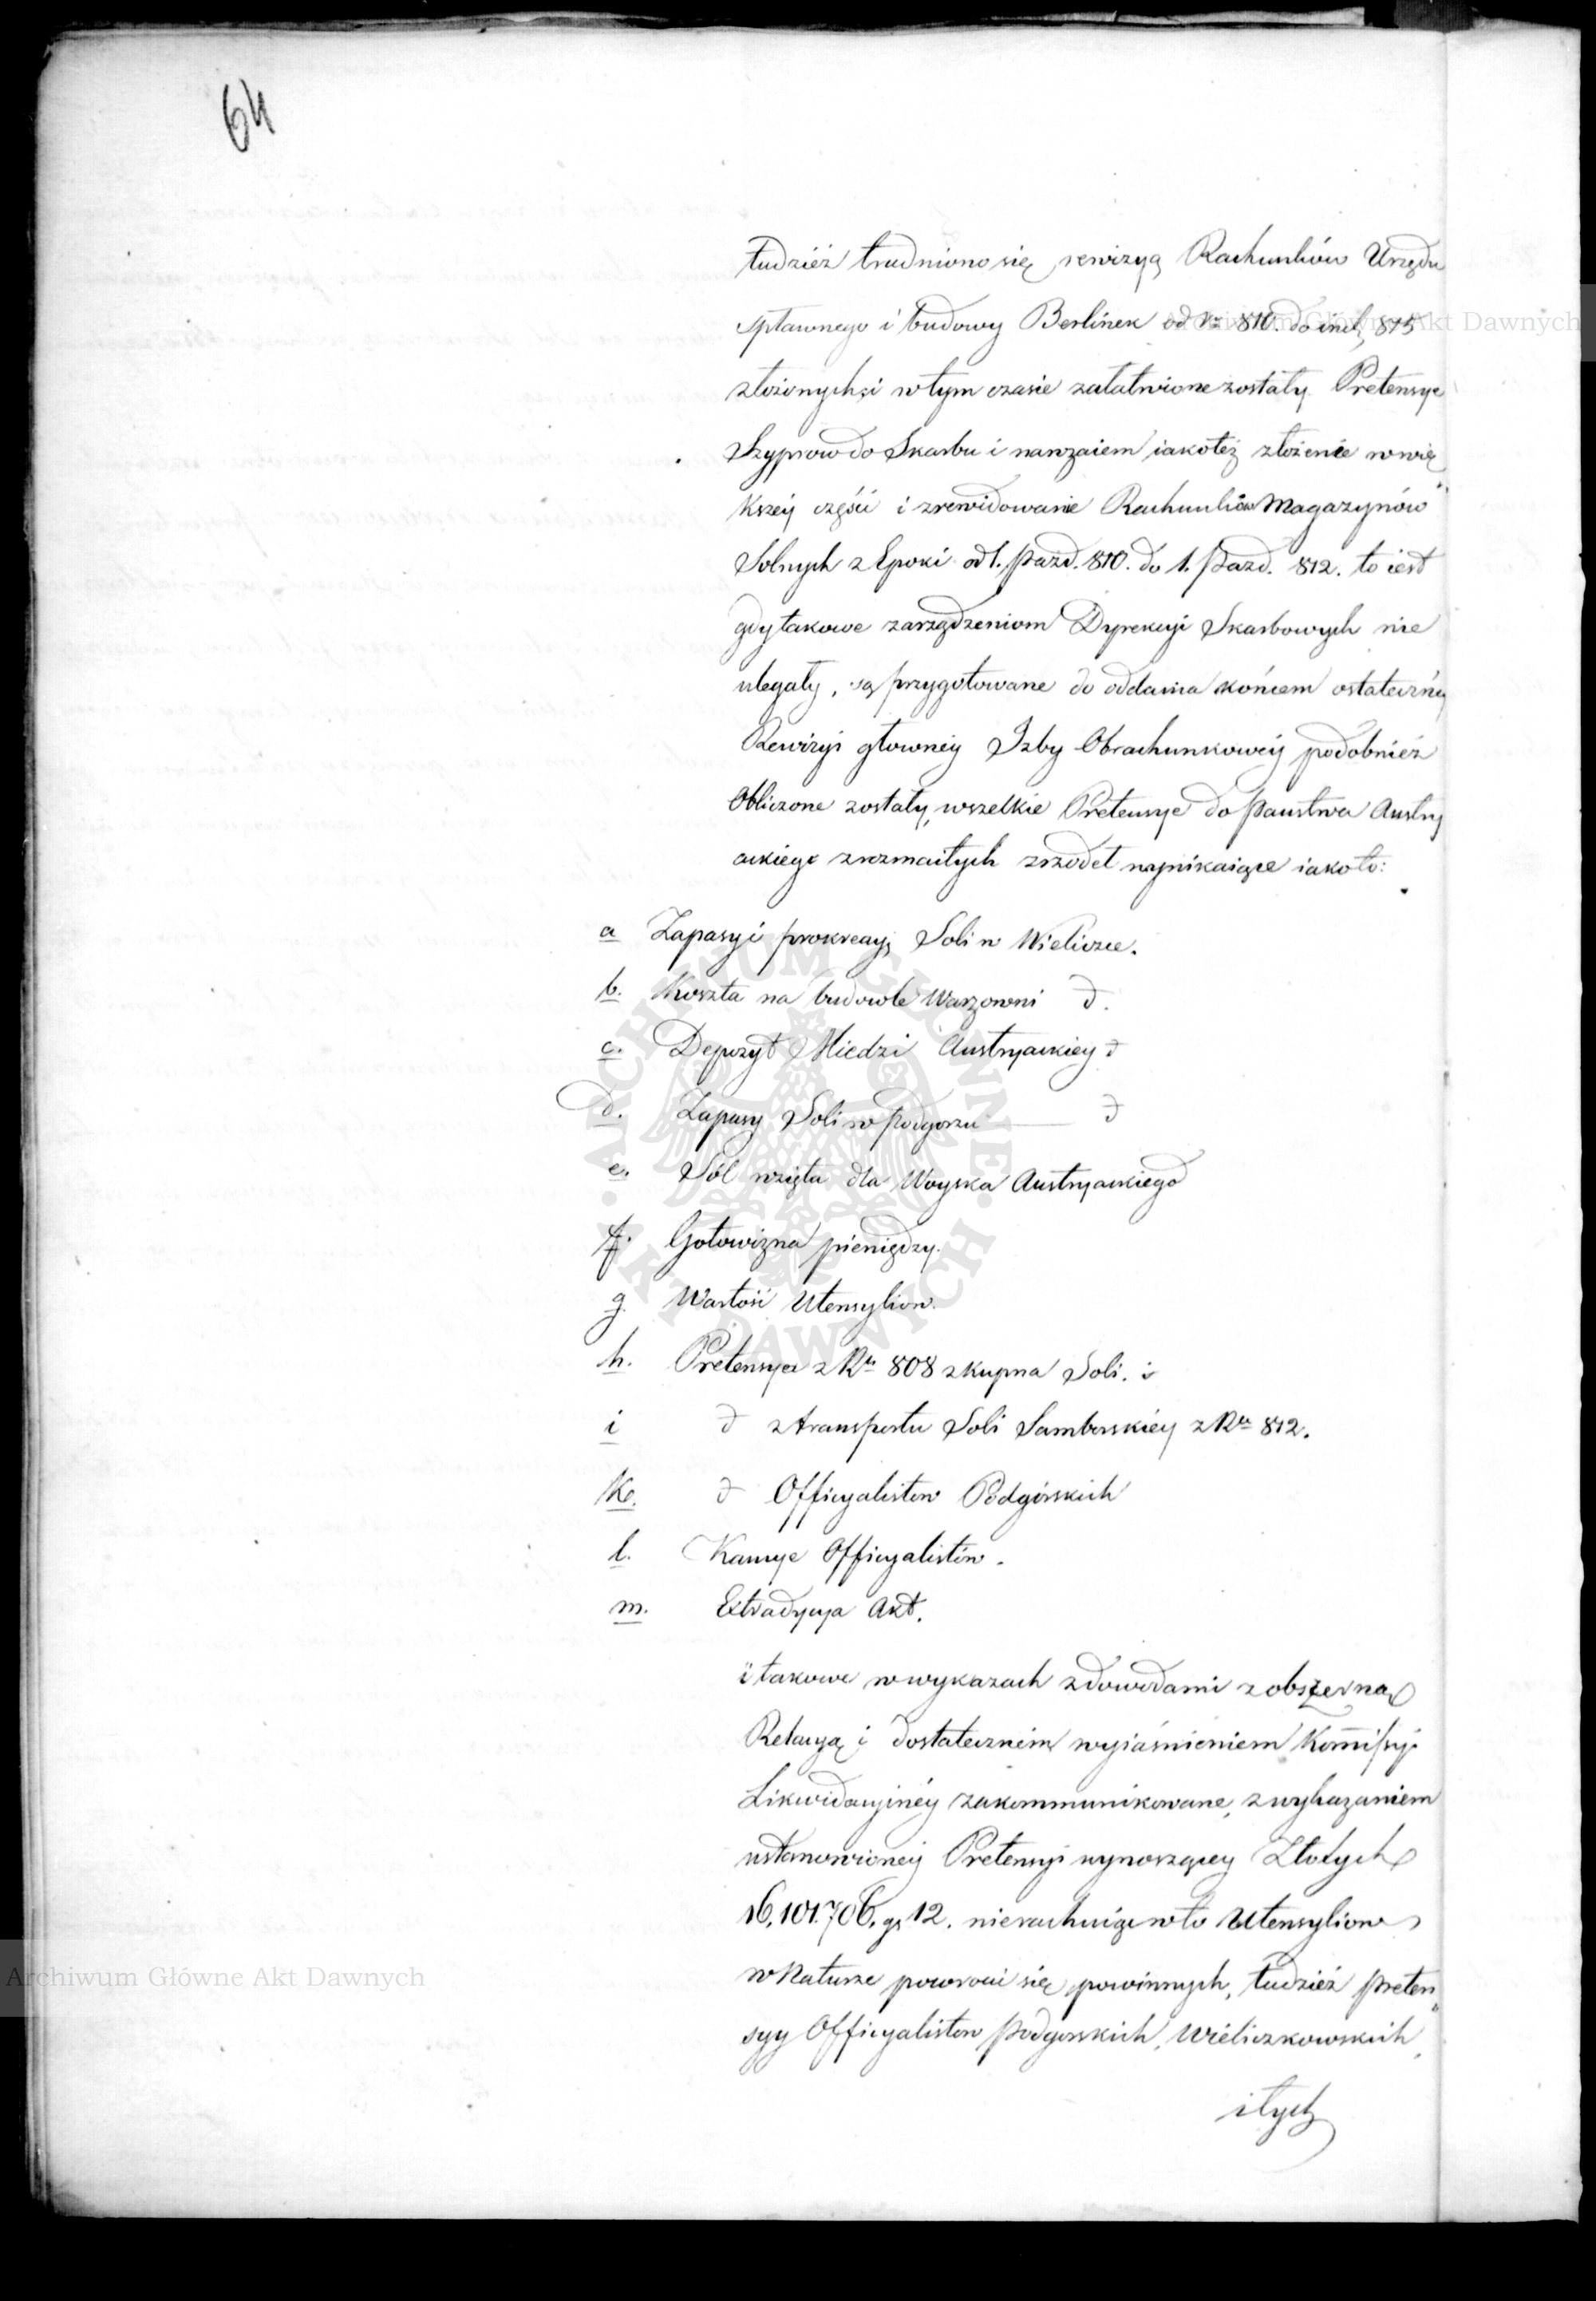 64
tudzież trudniono się rewizyą Rachunków Urzędu
spławnego i budowy Berlinek od Ru 810. do incl. 815
złożonych, i w tym czasie załatwione zostały Pretensye
Szyprow do Skarbu i nawzaiem iakoteż złożenie w wię„
kszey części i zrewidowanie Rachunków Magazynów
Solnych z Epoki od 1. Pazd. 810. do 1. Pazd. 812. to iest
gdy takowe zarządzeniom Dyrekcyi Skarbowych nie
ulegały, są przygotowane do oddania końcem ostateczney
Rewizyi głowney Izby Obrachunkowey podobnież
Obliczone zostały, wszelkie Pretensye do Państwa Austry
ackiego z rozmaitych zrzodeł wynikaiące iako to:
a Zapasy i prokreacyi Soli w Wieliczce.
b. Koszta na budowle Warzowni d.
c. Depozyt Miedzi Austryackiey d
d. Zapasy Soli w Podgorzu — d
e. Sól wzięta dla Woyska Austryackiego
f. Gotowizna pieniędzy.
g. Wartość Utensyliow.
h. Pretensya z Ru 808 z kupna Soli. i
i d z transportu Soli Samborskiey z Ru 812.
k. d Officyalistow Podgórskich
l. Kaucye Officyalistów.
m. Extradycya Akt.
i takowe w wykazach z dowodami z obszerną
Relacyą i dostatecznem wyiaśnieniem Kommissyi
Likwidacyiney zakommunikowane, z wykazaniem
ustanowioney Pretensyi wynoszącey Złotych
16,101.706. gr 12. nierachuiąc w to Utensyliow
w Naturze powrocić się powinnych, tudzież preten„
syy Officyalistow Podgorskich, Wieliczkowskich,
i tych
Archiwum Główne Akt Dawnych
Archiwum Główne Akt Dawnych
ARCHIWUM GŁÓWNE AKT DAWNYCH